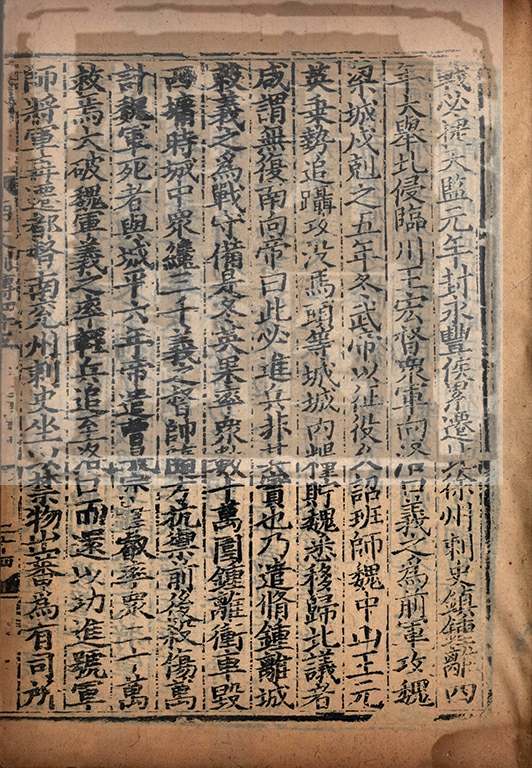 戰必捷天監元年封永豐侯累遷北徐州刺史鎮鍾離四
年大舉北侵臨川王宏督衆軍向洛口義之為前軍攻魏
梁城戍剋之五年冬武帝以征役久詔班師魏中山王元
英乗勢追躡攻没馬頭等城城内糧貯魏悉移歸北議者
咸謂無復南向帝曰此必進兵非其實也乃遣脩鍾離城
敕義之為戰守備是冬英果率衆數十萬圍鍾離衝車毀
西墉時城中衆纔三千義之督帥隨方抗禦前後殺傷萬
計魏軍死者與城平六年帝遣曹景宗韋叡率衆二十萬
救焉大破魏軍義之率輕兵追至洛口而還以功進號軍
師將軍再遷都督南兖州刺史坐以禁物出蕃為有司所